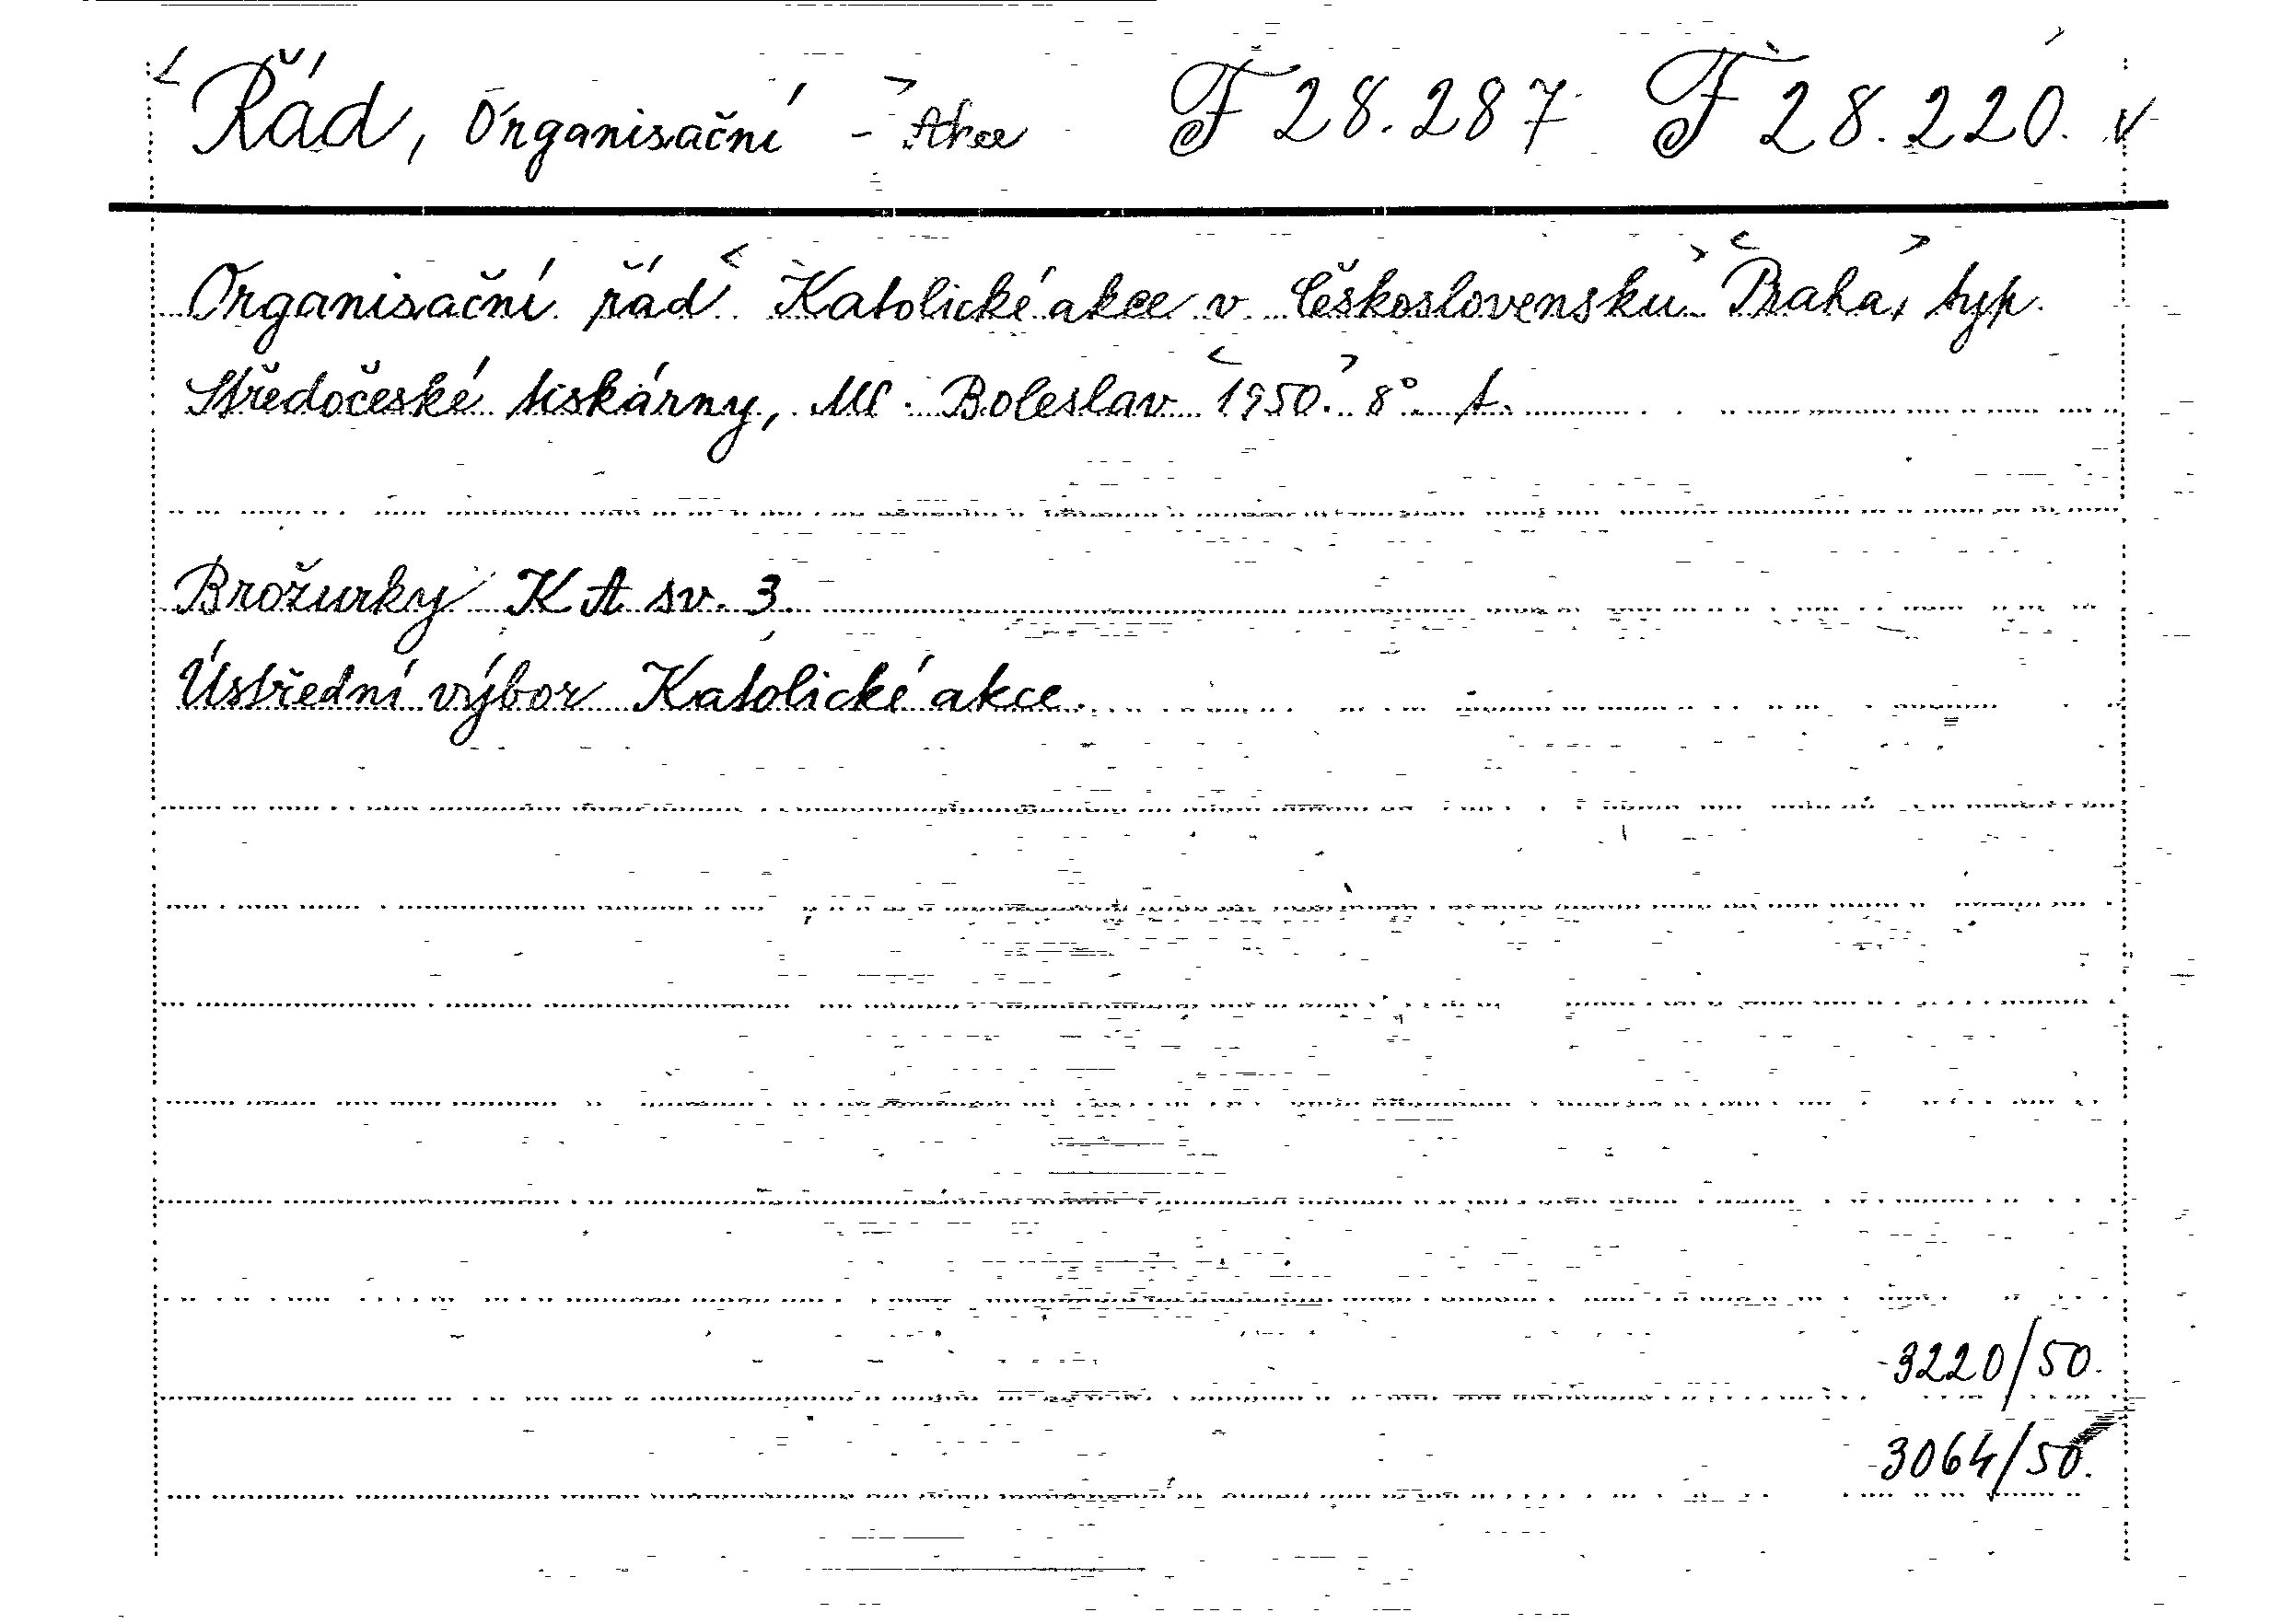 Řád, Organisační - Akce F 28.287 F 28.220.
Organisační řád Katolické akce v Československu. Praha, typ.
Středočeské tiskárny, Ml. Boleslav 1950. 8°. t.
Brožurky KA sv. 3.
Ústřední výbor Katolické akce.
3220/50.
3064/50.